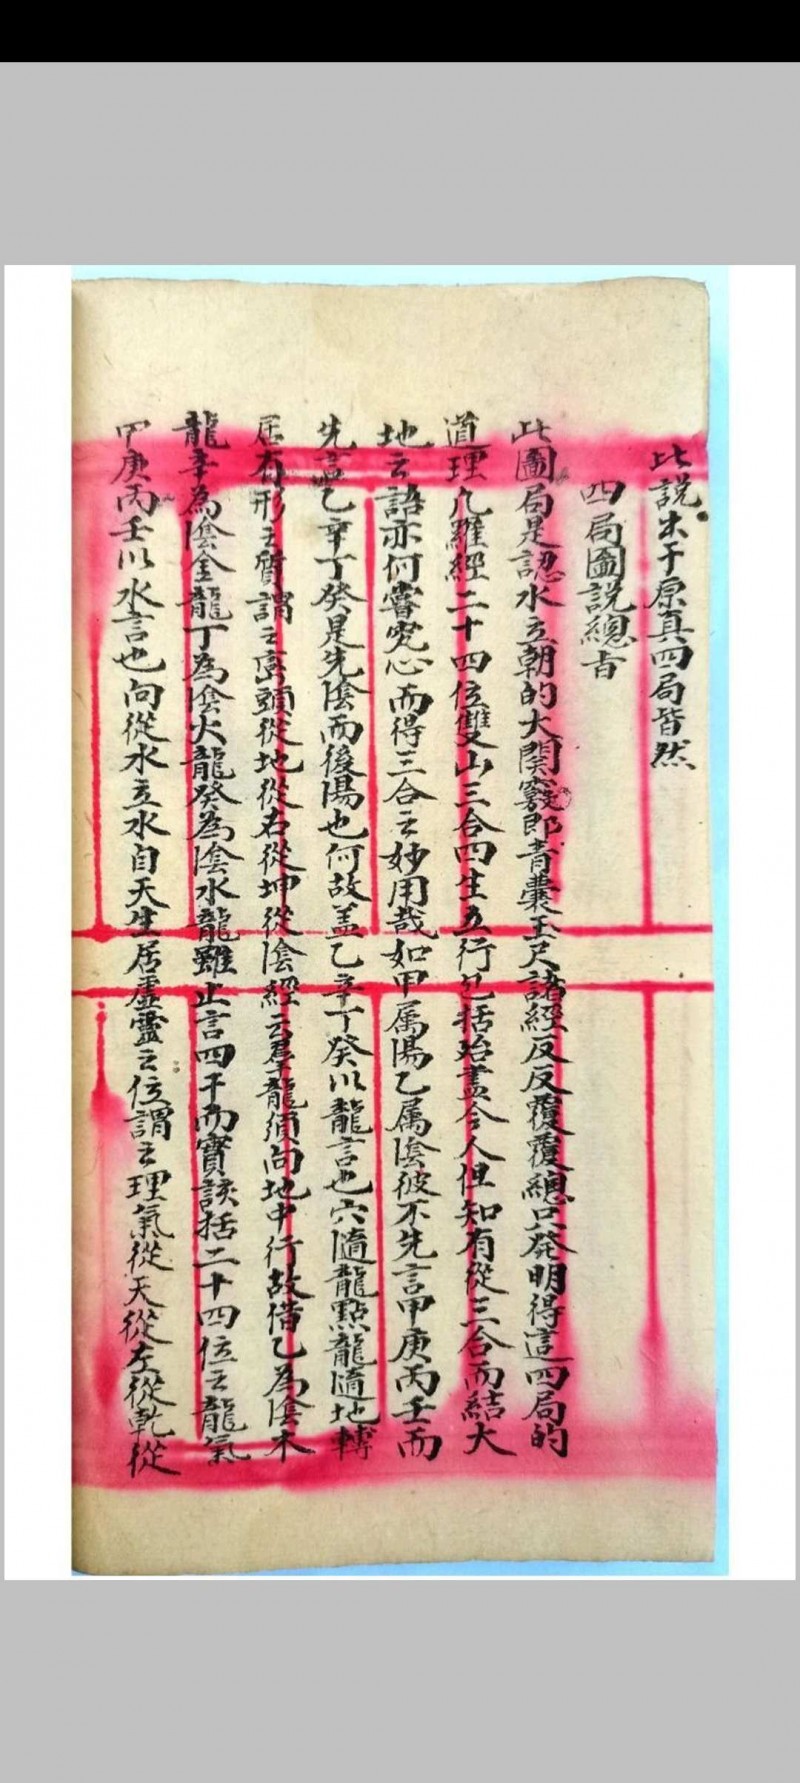 此說出于原真四局皆然
四局圖說總旨
此圖局是認水立朝的大関竅即青囊玉尺諸經反反覆覆總只発明得這四局的
道理凡羅經二十四位雙山三合四生五行包括殆盡今人但知有從三合而結大
地之語亦何嘗究心而得三合之妙用哉如甲属陽乙属陰彼不先言甲庚丙壬而
先言乙辛丁癸是先陰而後陽也何故盖乙辛丁癸以龍言也穴隨龍點龍隨地轉
居有形之質謂之巒頭從地從右從坤從陰經云羣龍須向地中行故借乙為陰木
龍辛為陰金龍丁為陰火龍癸為陰水龍雖止言四干而實該括二十四位之龍氣
甲庚丙壬以水言也向從水立水自天生居虛靈之位謂之理氣從天從左從乾從